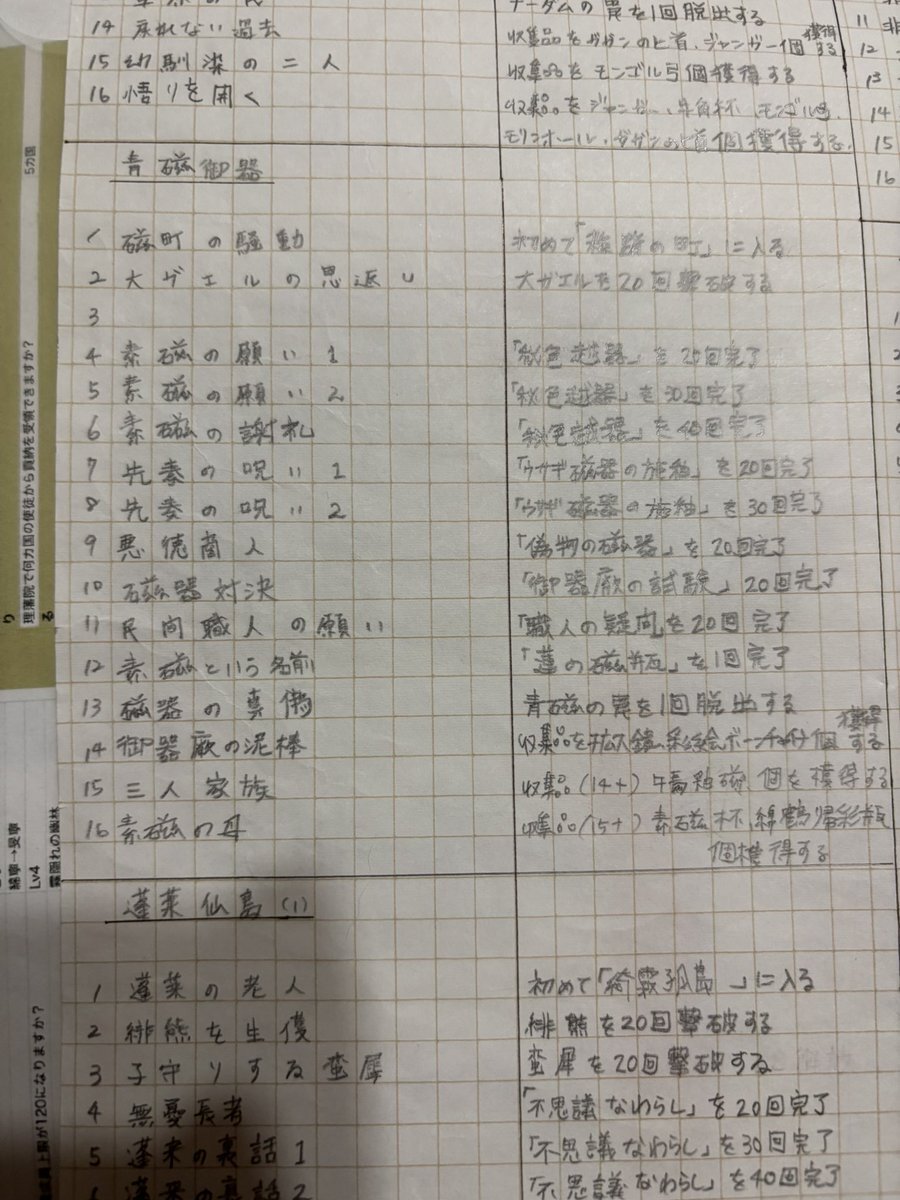 14 戻れない過去
15 幼馴染の二人
16 悟りを開く
ナーダムの罠を1回脱出する
収集品をダガンのヒ首、ジャンガー個獲得する
収集品をモンゴル弓個獲得する
収集品をジャンガー、牛角杯、モンゴル弓、
モリンホール、ダガンのヒ首個獲得する。
青磁御器
1 磁町の騒動 初めて「 の町」に入る
2 大ガエルの恩返し 大ガエルを20回撃破する
3
4 素磁の願い1 「秘色越器」を20回完了
5 素磁の願い2 「秘色越器」を30回完了
6 素磁の謝礼 「秘色越器」を40回完了
7 先秦の呪い1 「ウサギ磁器の施釉」を20回完了
8 先秦の呪い2 「ウサギ磁器の施釉」を30回完了
9 悪徳商人 「偽物の磁器」を20回完了
10 磁器対決 「御器廠の試験」20回完了
11 民間職人の願い 「職人の疑問」を20回完了
12 素磁という名前 「蓮の磁瓶」を1回完了
13 磁器の真偽 青磁の罠を1回脱出する
14 御器厰の泥棒 収集品を 個獲得する
15 三人家族 収集品(14+) 釉磁 個を獲得する
16 素磁の耳 収集品(15+) 素磁杯、綿鶴帰彩瓶
個獲得する
蓬莱仙島(1)
1 蓬莱の老人 初めて「綺霞孤島」に入る
2 緋熊を生優 緋熊を20回撃破する
3 子守りする蛮犀 蛮犀を20回撃破する
4 無憂長者 「不思議なわらし」を20回完了
5 蓬莱の裏話1 「不思議なわらし」を30回完了
6 蓬莱の裏話2 「不思議なわらし」を40回完了
11
12
13
14
15
16
5カ国
理藩院で何カ国の使徒から貢納を受領できますか?
り
る
綿竜→旻竜
Lv4
霧隠れの幽林
上限が120になりますか?